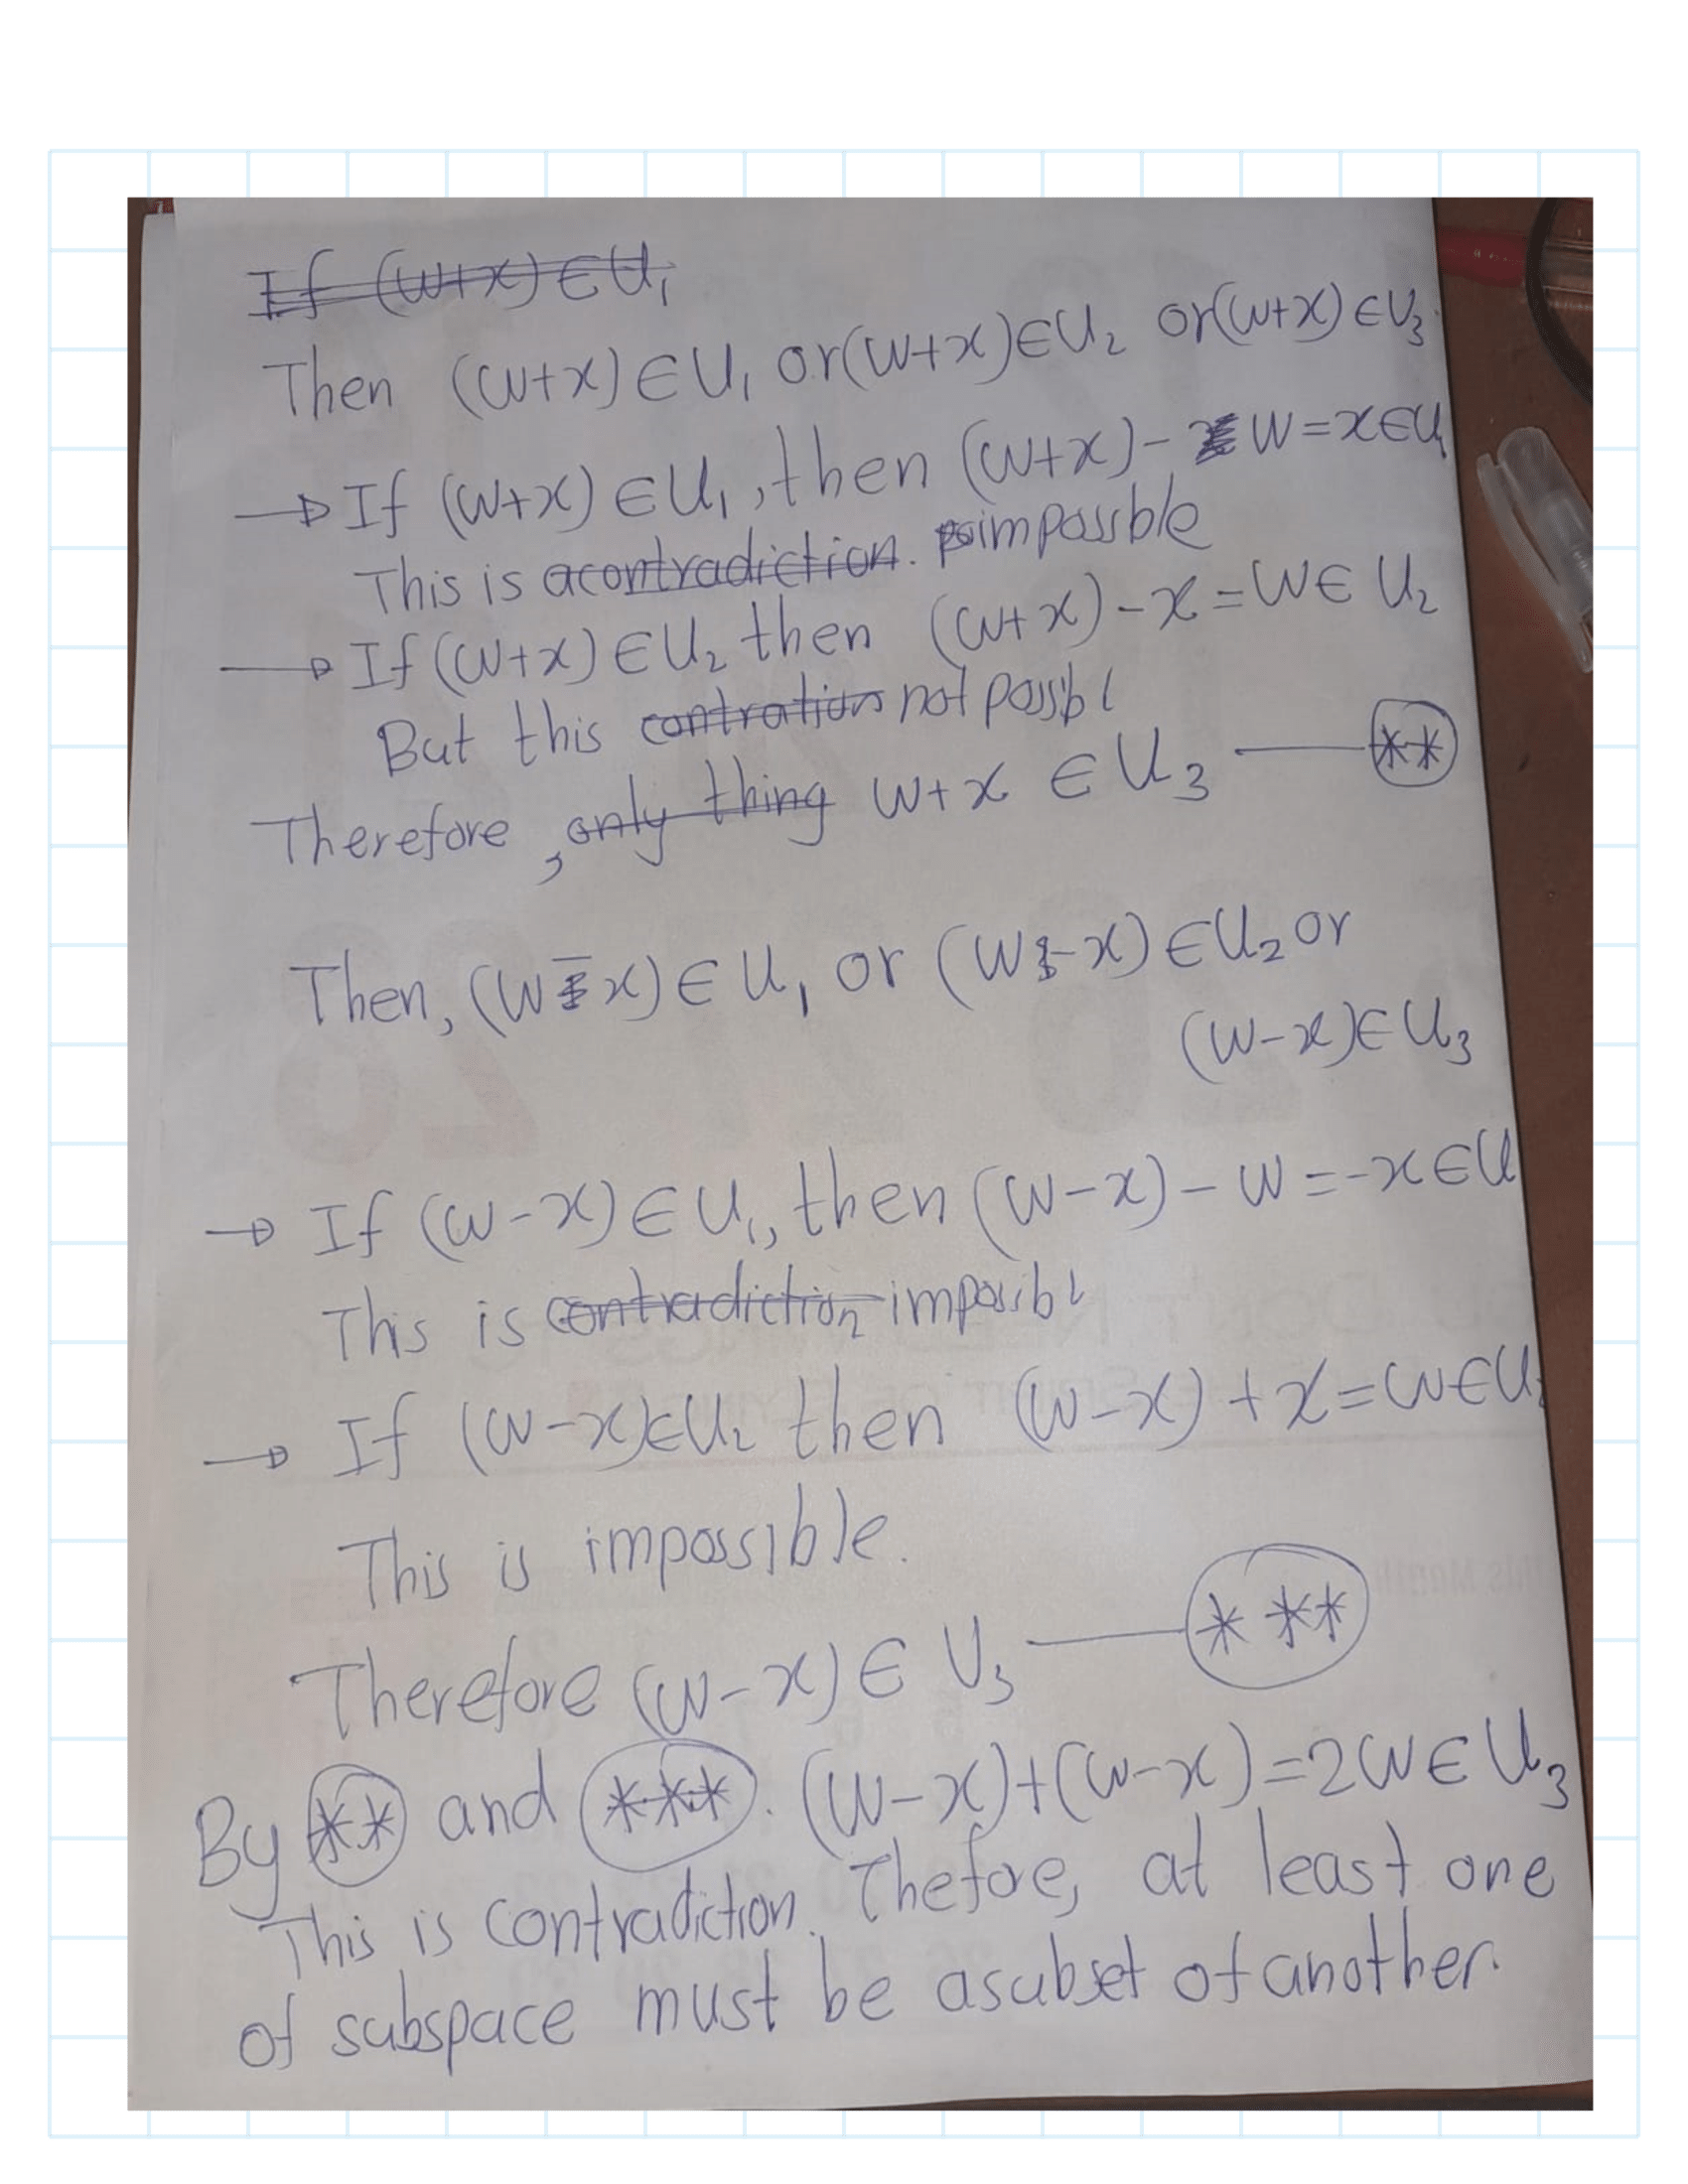 If (w+x) ∈ U₁
Then (w+x) ∈ U₁ or (w+x) ∈ U₂ or (w+x) ∈ U₃.
→ If (w+x) ∈ U₁, then (w+x) - w = x ∈ U₁
This is a contradiction. impossble
→ If (w+x) ∈ U₂ then (w+x) - x = w ∈ U₂
But this contration not possibl
Therefore, only thing w+x ∈ U₃ — **
Then, (w-x) ∈ U₁ or (w-x) ∈ U₂ or
(w-x) ∈ U₃
→ If (w-x) ∈ U₁, then (w-x) - w = -x ∈ U
This is contradiction impossibl
→ If (w-x) ∈ U₂ then (w-x) + x = w ∈ U₂
This is impossible.
Therefore (w-x) ∈ U₃ — ***
By ** and ***. (w-x)+(w-x) = 2w ∈ U₃
This is contradiction. Thefore, at least one
of subspace must be a subset of another.